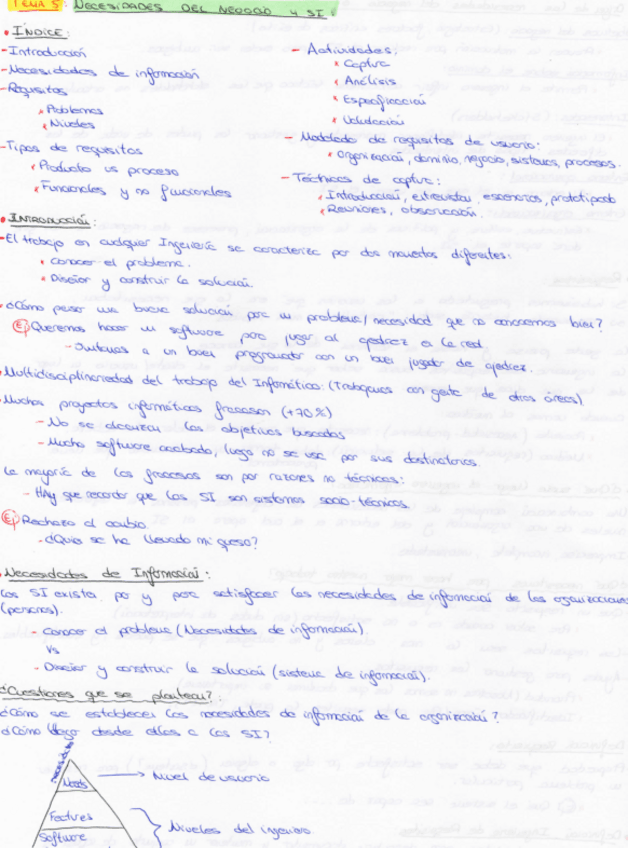 TEMA 5: NECESIDADES DEL NEGOCIO Y SI
• ÍNDICE:
- Introducción
- Necesidades de información
- Requisitos
* Problemas
* Niveles
- Tipos de requisitos
* Producto vs proceso
* Funcionales y no funcionales
- Actividades:
* Captura
* Análisis
* Especificación
* Validación
- Modelado de requisitos de usuario:
* Organización, dominio, negocio, sistemas, procesos.
- Técnicas de captura:
* Introducción, entrevistas, escenarios, prototipado
* Reuniones, observación.
• INTRODUCCIÓN:
- El trabajo en cualquier Ingeniería se caracteriza por dos momentos diferentes:
• Conocer el problema.
• Diseñar y construir la solución.
¿Cómo pensar una buena solución para un problema/necesidad que no conocemos bien?
Ej Queremos hacer un software para jugar al ajedrez en la red.
- Juntamos a un buen programador con un buen jugador de ajedrez.
• Multidisciplinariedad del trabajo del Informático: (Trabajamos con gente de otras áreas)
• Muchos proyectos informáticos fracasan (+70%)
- No se alcanzan los objetivos buscados
- Mucho software acabado, luego no se usa por sus destinatarios.
La mayoría de los fracasos son por razones no técnicas:
- HAy que recordar que los SI son sistemas socio-técnicos.
Ej Rechazo al cambio.
- ¿Quién se ha llevado mi queso?
• Necesidades de Información:
Los SI existen por y para satisfacer las necesidades de información de las organizaciones
(personas).
- Conocer el problema (Necesidades de información).
vs
- Diseñar y construir la solución (sistema de información).
¿Cuestiones que se plantean?:
¿Cómo se establecen las necesidades de información de la organización?
¿Cómo llego desde ellas a los SI?
Needs
→ Nivel de usuario
Features
Software
Niveles del ingeniero